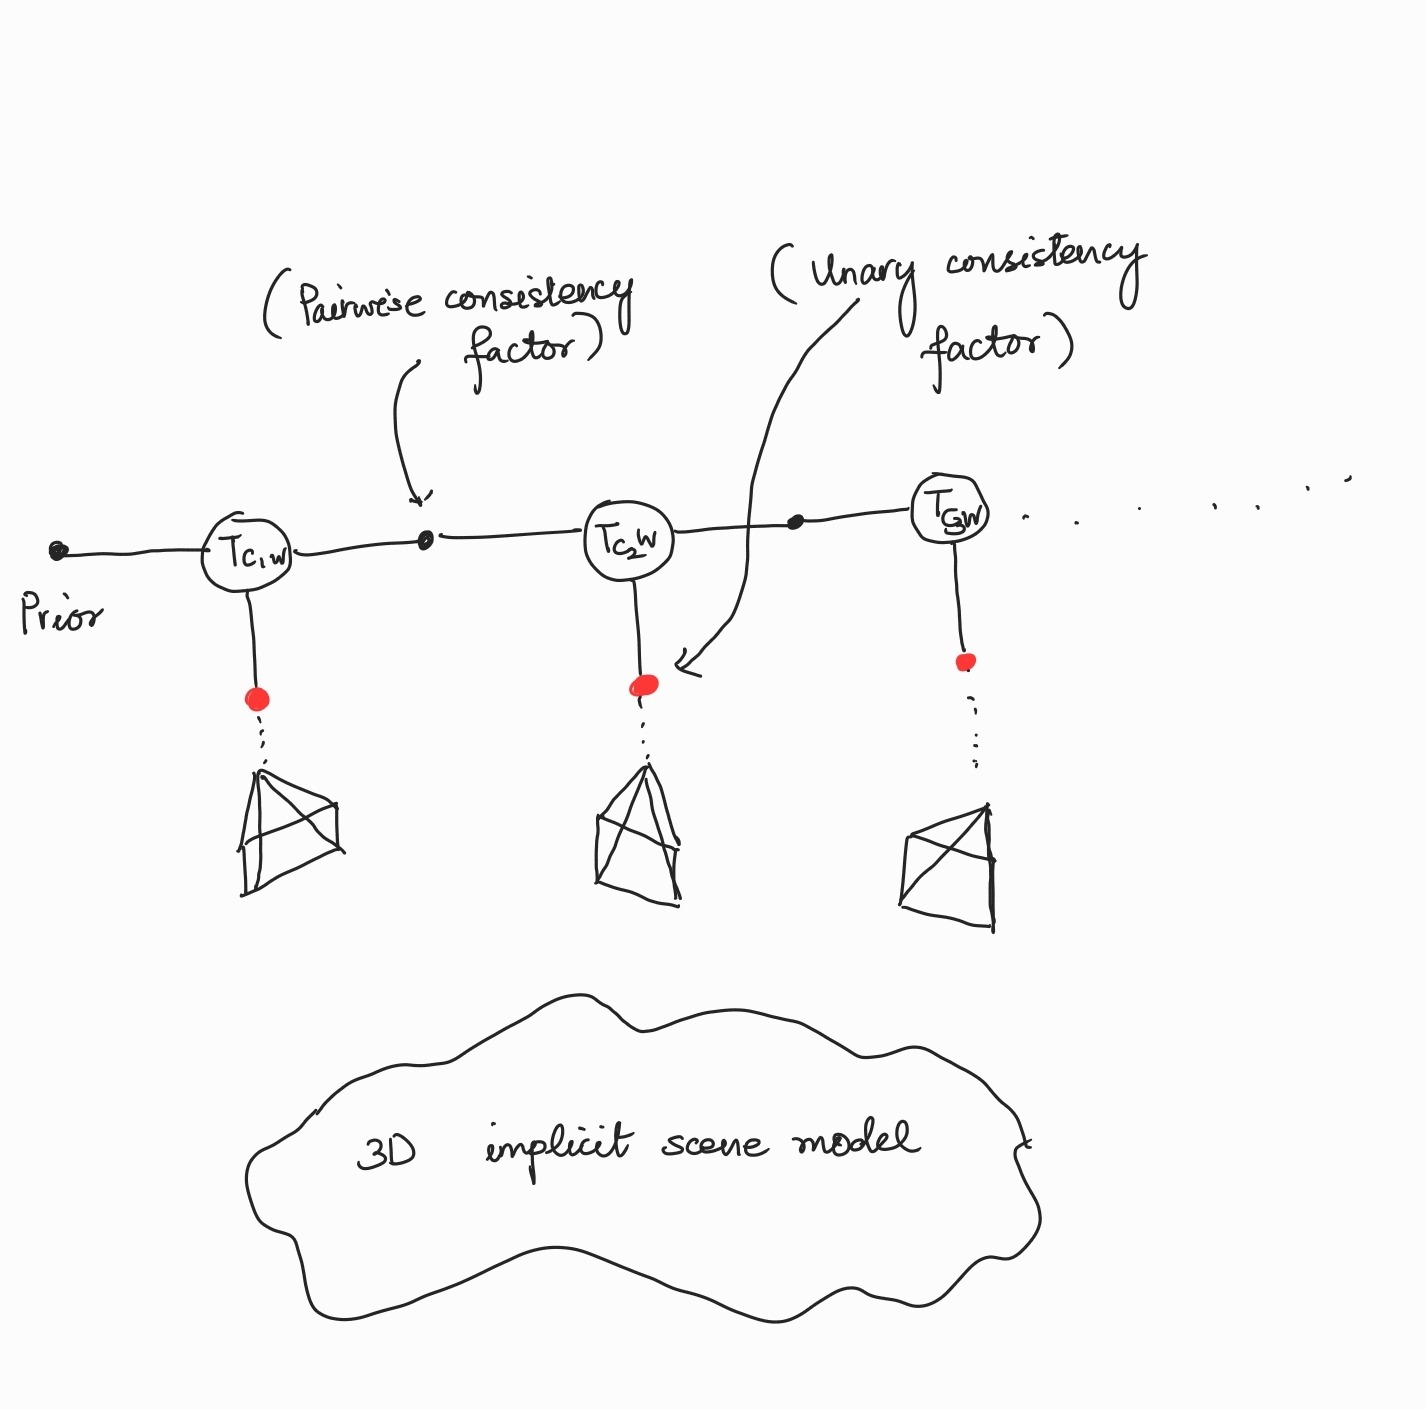 (Pairwise consistency
factor)
(Unary consistency
factor)
Tc₁w
Tc₂w
Tc₃w
Prior
3D implicit scene model